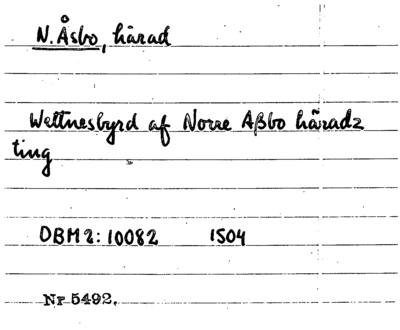 N. Åsbo, härad
Wettnesbyrd af Norre Aßbo häradz
ting
DBM 2: 10082 1504
Nr 5492.